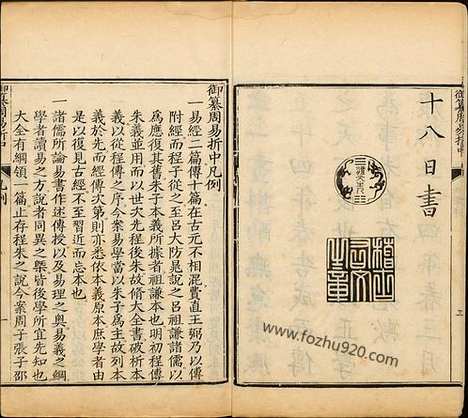 十八日書
御纂周易折中
www.fozhu920.com
御纂周易折中凡例
一易經二篇傳十篇在古元不相混費直王弼乃以傳
附經而程子從之至呂大防晁說之呂祖謙諸儒以
為應復其舊朱子本義所據者祖謙本也明初程傳
朱義並用而以世次先程後朱故脩大全書破析本
義而從程傳之序今案易學當以朱子為主故列本
義於先而經傳次第則亦悉依本義原本庶學者由
是以復見古經不至習近而忘本也
一諸儒所論易書作述傳授以及易理之奧易義之綱
學者讀易之方說者同異之槩皆後學所宜先知也
大全有綱領一篇止存程朱之說今案周子張子邵
御纂周易折中
凡例